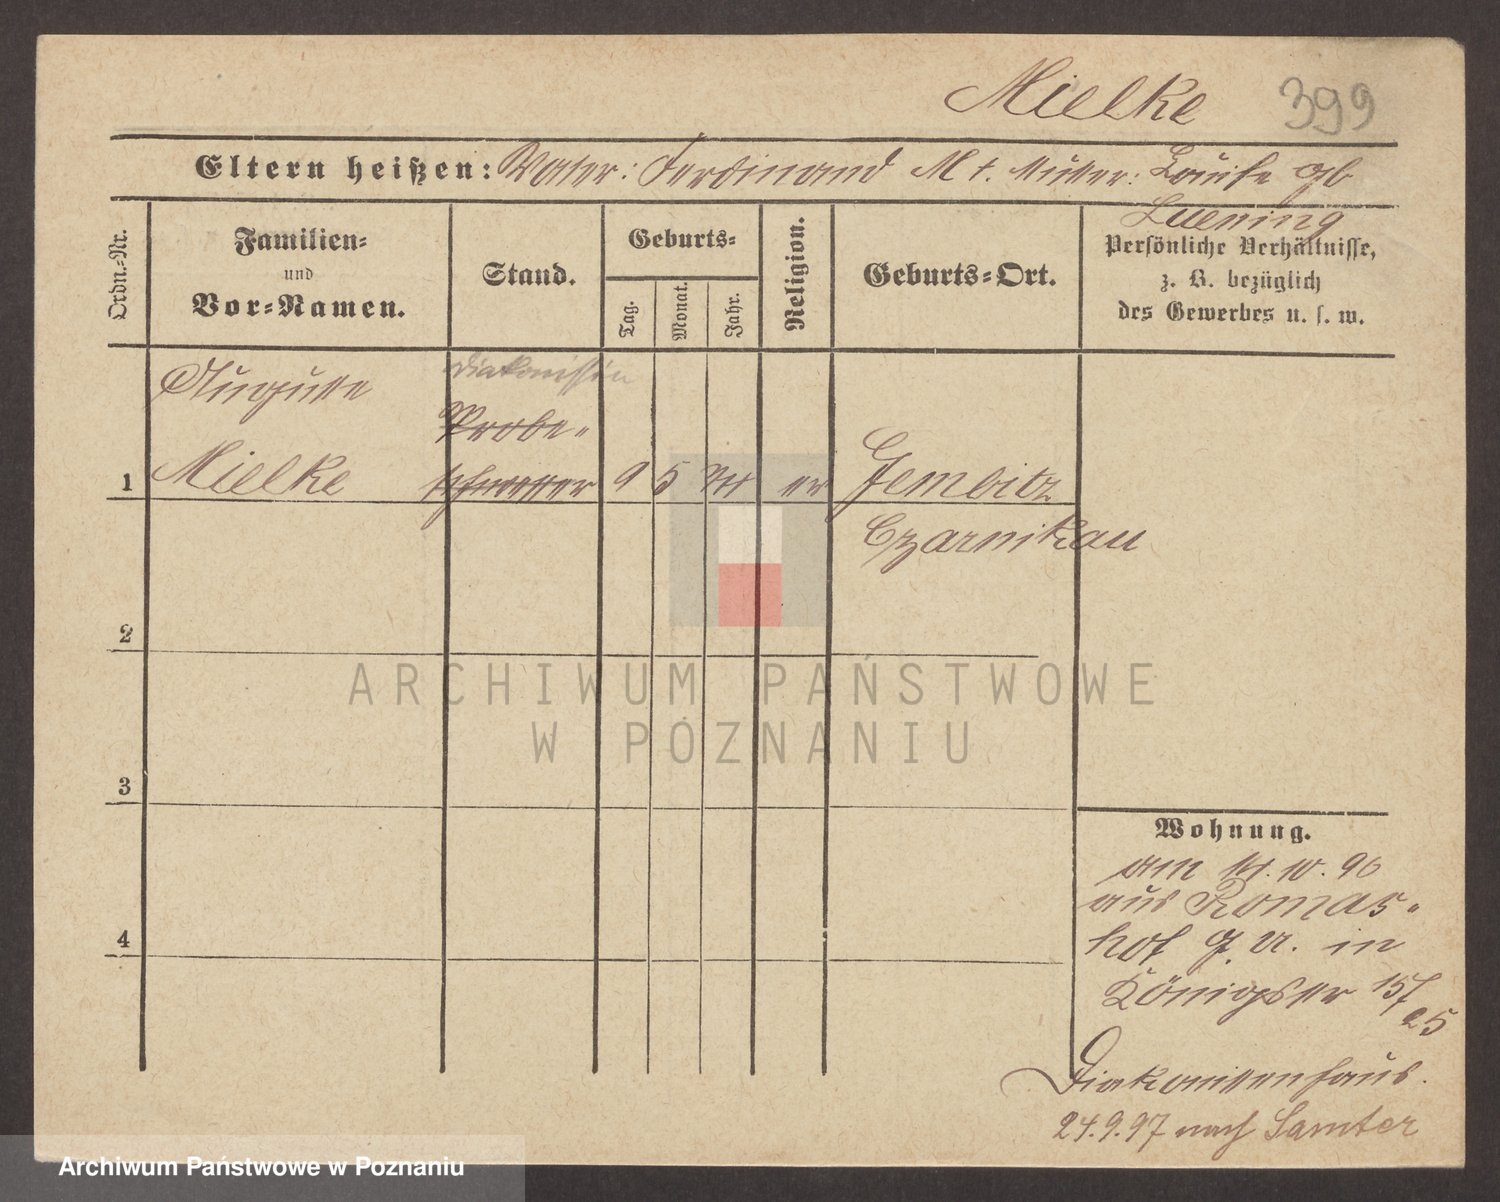 Mielke 399
Eltern heißen: Vater: Ferdinand M t. Mutter: Louise gb
Luening
Ordn.-Nr.
Familien-
und
Vor-Namen.
Stand.
Geburts-
Tag.
Monat.
Jahr.
Religion.
Geburts-Ort.
Persönliche Verhältnisse,
z. B. bezüglich
des Gewerbes u. s. w.
Auguste
Diakonissin
Probe-
1 Mielke schwester 9 5 ev Gembitz
Czarnikau
2
3
4
Wohnung.
am 10. 96
aus Romas-
hof G. A. in
Königstr 15/
25
Diakonissenhaus.
24.9.97 nach Samter
ARCHIWUM PAŃSTWOWE
W POZNANIU
Archiwum Państwowe w Poznaniu